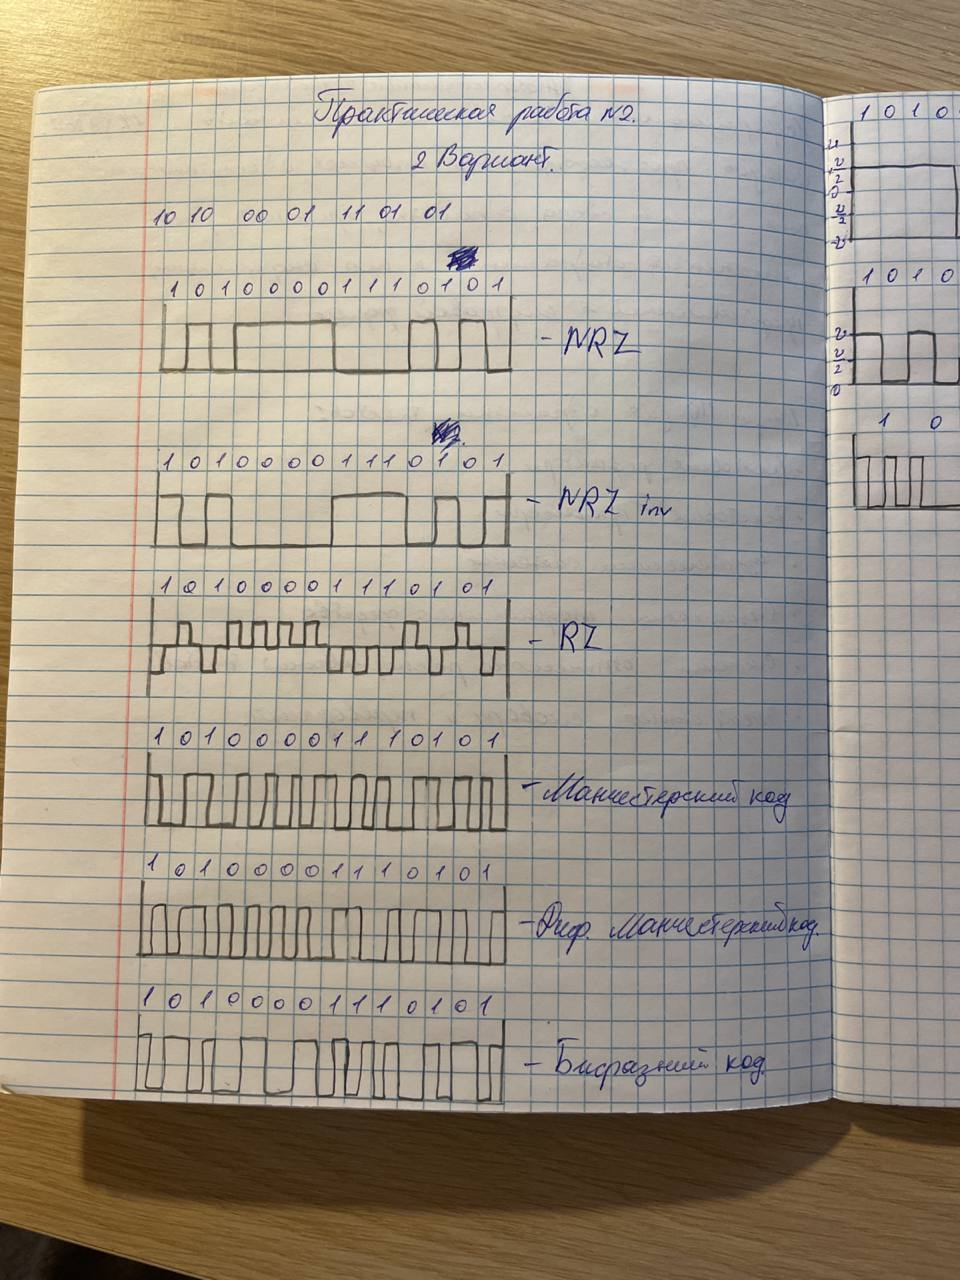 Практическая работа №2.
2 Вариант.
10 10 00 01 11 01 01
1 0 1 0 0 0 0 1 1 1 0 1 0 1
- NRZ
1 0 1 0 0 0 0 1 1 1 0 1 0 1
- NRZ inv
1 0 1 0 0 0 0 1 1 1 0 1 0 1
- RZ
1 0 1 0 0 0 0 1 1 1 0 1 0 1
- Манчестерский код
1 0 1 0 0 0 0 1 1 1 0 1 0 1
- Диф. Манчестерский код.
1 0 1 0 0 0 0 1 1 1 0 1 0 1
- Бифазний код.
1 0 1 0
1 0 1 0
1 0